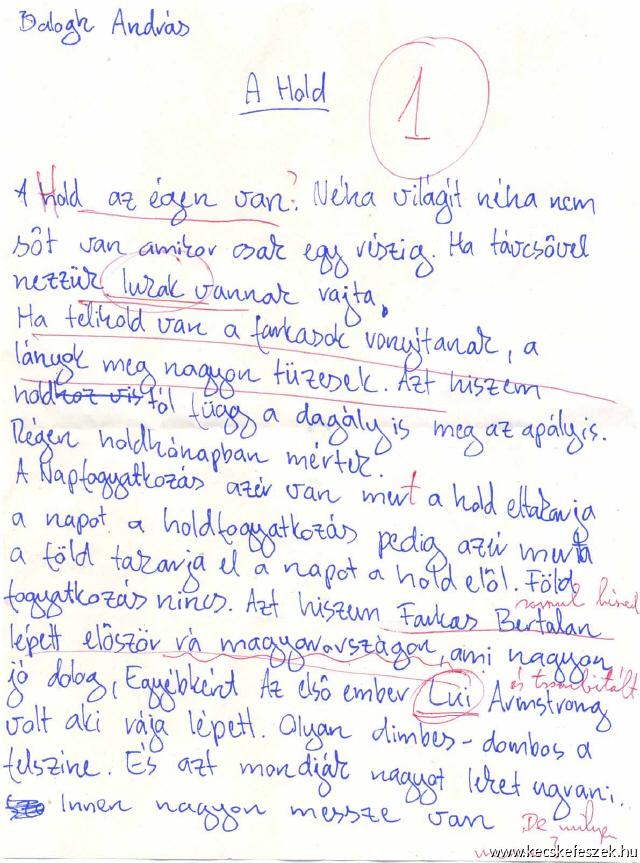 Balogh András
A Hold
1
A Hold az égen van. ? Néha világít néha nem
sőt van amikor csak egy részig. Ha távcsővel
nézzük lukak vannak rajta.
Ha telihold van a farkasok vonyítanak, a
lányok meg nagyon tüzesek. Azt hiszem
holdhoz vis től függ a dagály is meg az apály is.
Régen holdhónapban mértek.
A Napfogyatkozás azér van mert a hold eltakarja
a napot a holdfogyatkozás pedig azér mert a
a föld takarja el a napot a hold elől. Föld
fogyatkozás nincs. Azt hiszem Farkas Bertalan
rossul hiszed
lépett először rá magyarországon, ami nagyon
jó dolog, Egyébként Az első ember Lui Armstrong
és trombitált
volt aki rája lépett. Olyan dimbes-dombos a
felszíne. És azt mondják nagyot lehet ugrani..
Innen nagyon messze van
De milyen
www.kecskefeszek.hu